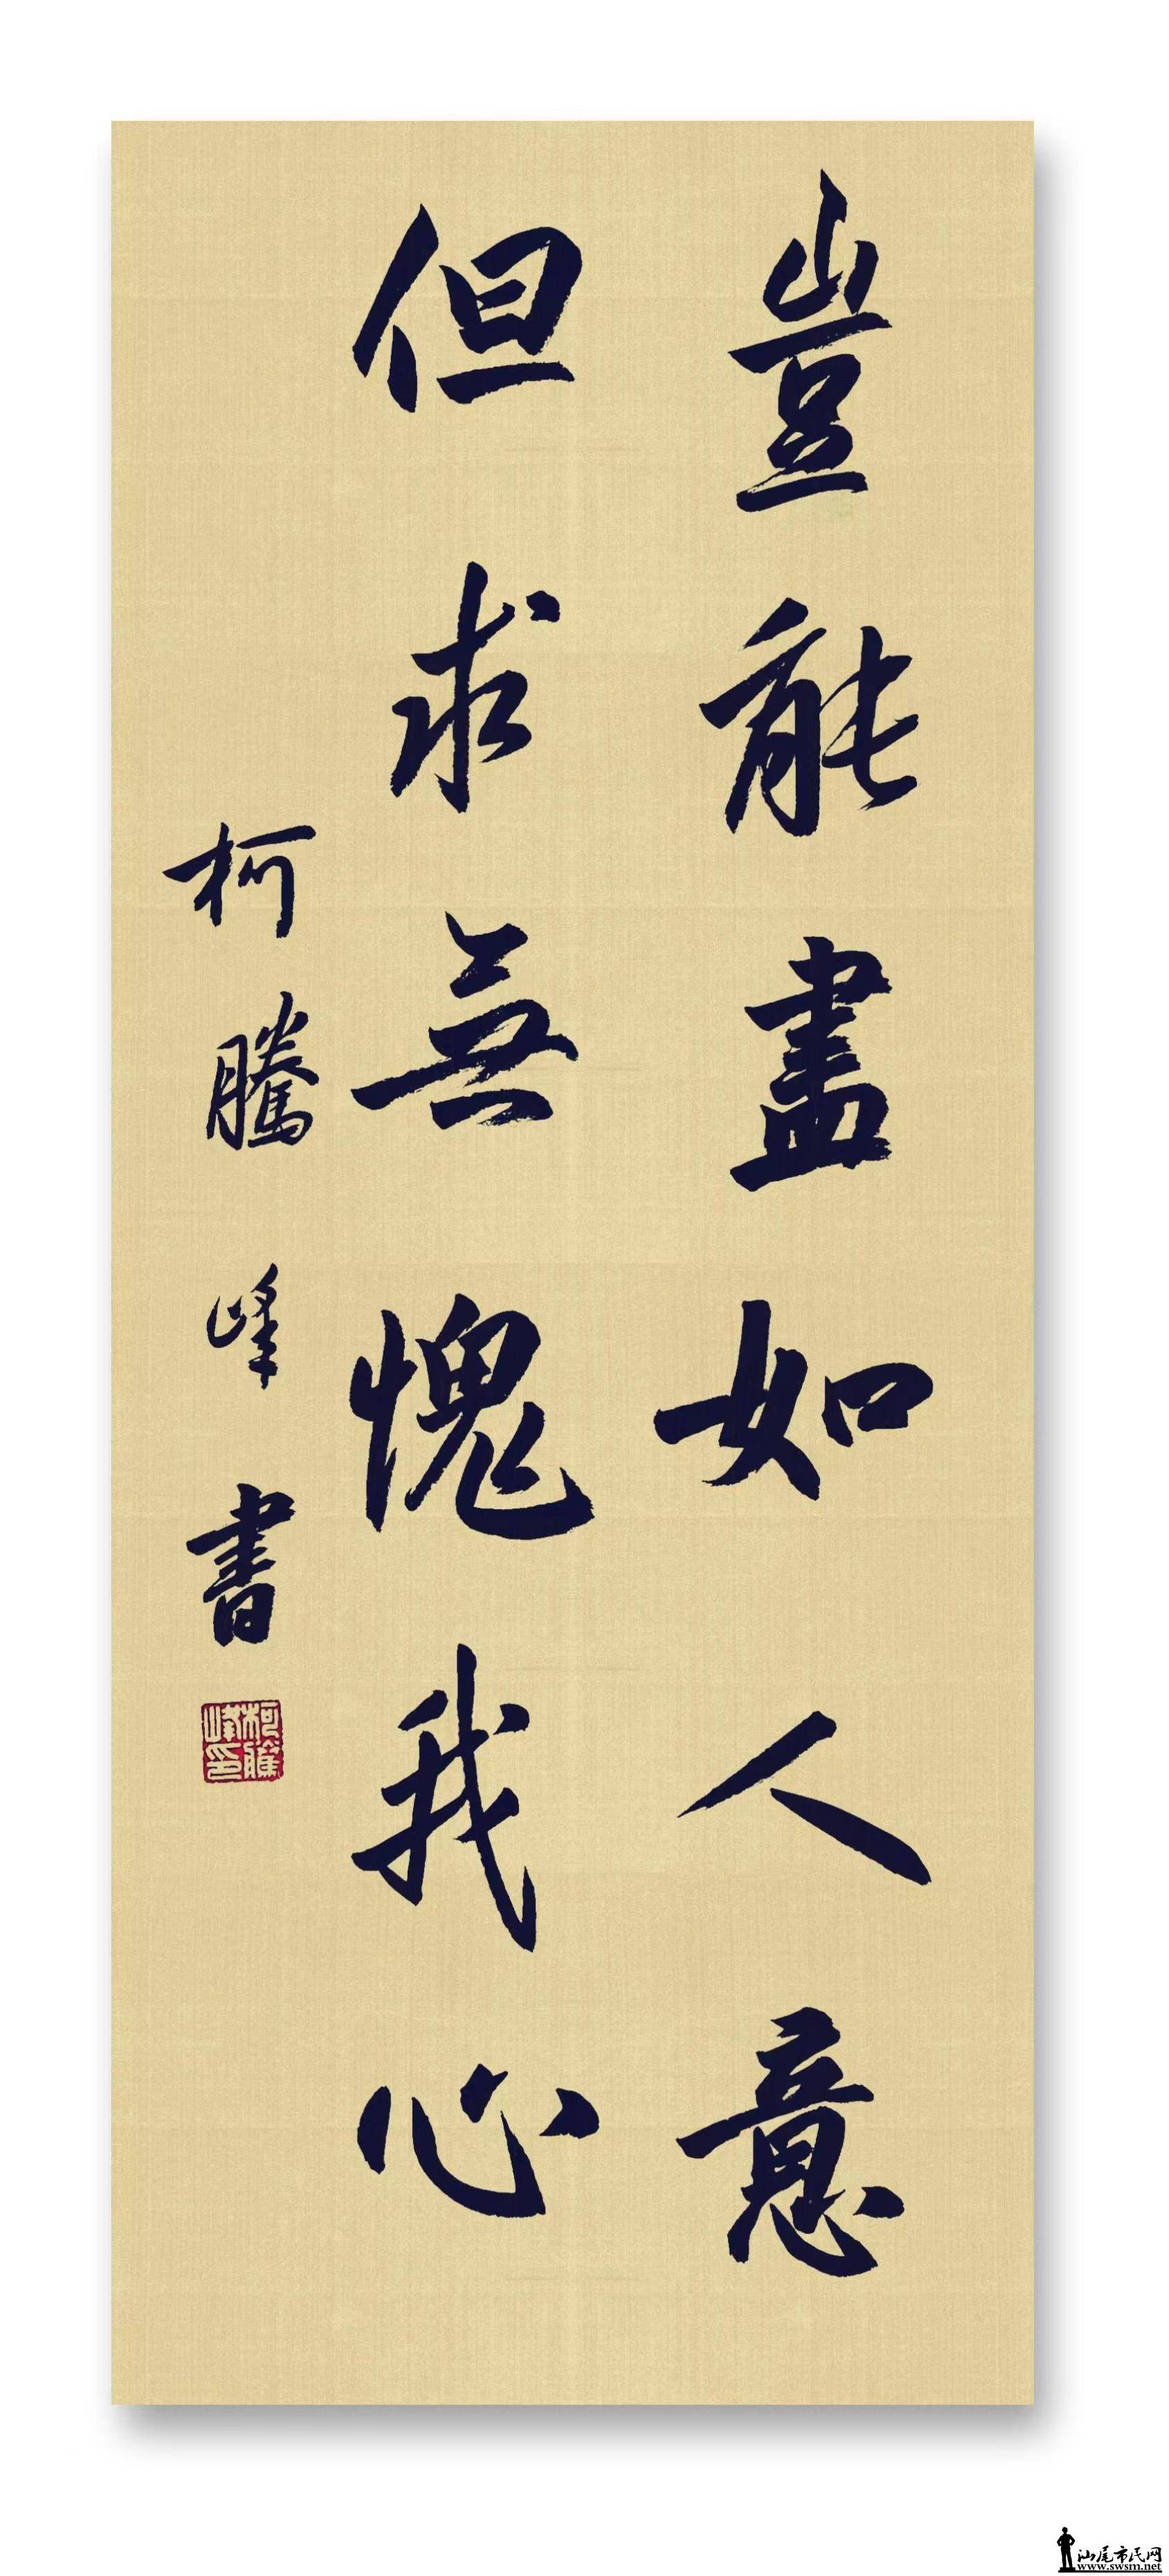 豈能盡如人意
但求無愧我心
柯騰峰書
柯騰峰印
汕尾市民网
www.swsm.net